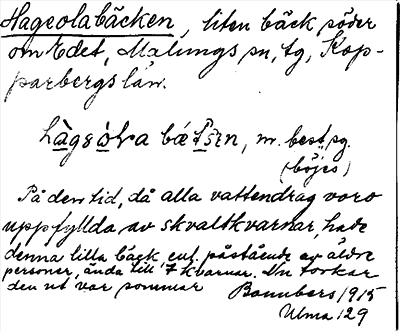 Hageolabäcken, liten bäck söder
om Edet, Malungs sn, tg, Kop-
parbergs län.
hàgsòlra bætsen, m. best. sg.
(böjes)
På den tid, då alla vattendrag voro
uppfyllda av skvaltkvarnar, hade
denna lilla bäck, enl. påstående av äldre
personer, ända till 7 kvarnar. Nu torkar
den ut var sommar
Bannbers 1915
Ulma 129